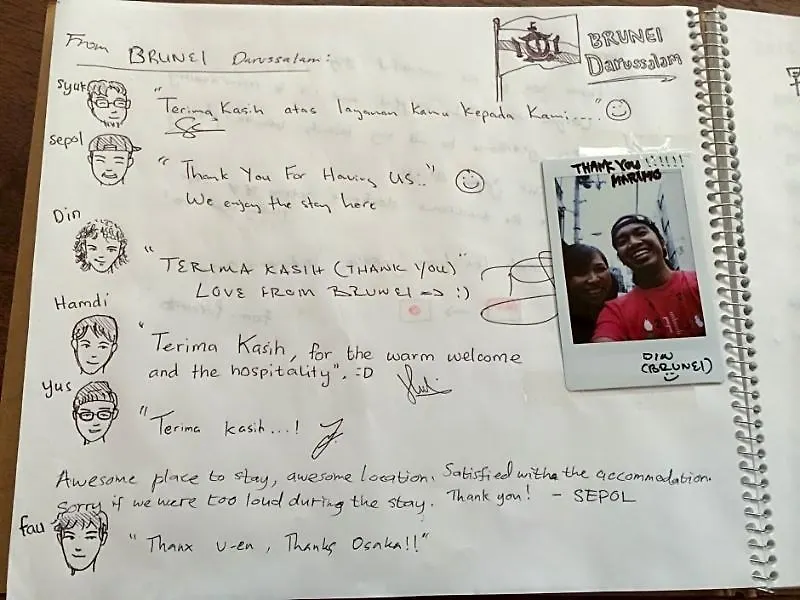 From BRUNEI Darussalam:
BRUNEI
Darussalam
Syuk
"Terima Kasih atas layanan kamu kepada kami...."
sepol
"Thank You For Having US.."
We enjoy the stay here
Din
"TERIMA KASIH (THANK YOU)"
LOVE FROM BRUNEI => :)
Hamdi
"Terima Kasih, for the warm welcome
and the hospitality". :D
Yus
"Terima kasih...!
Awesome place to stay, awesome location. Satisfied with the accommodation.
Sorry if we were too loud during the stay. Thank you! - SEPOL
fau
"Thanx u-en, Thanks Osaka!!"
THANK YOU !!!!!!
MARUMO
DIN
(BRUNEI)